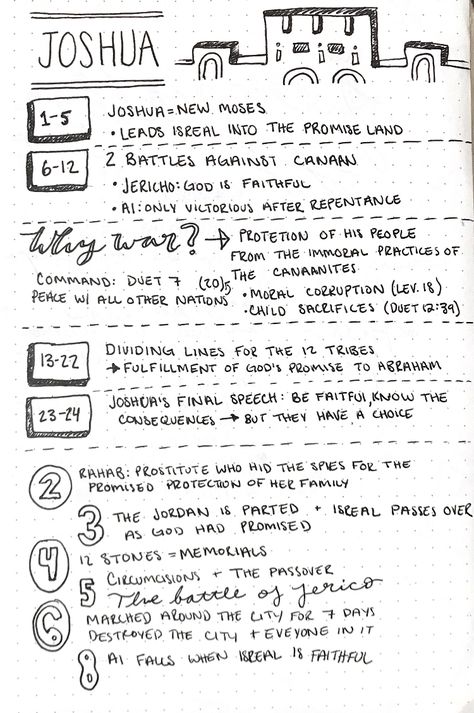 JOSHUA
1-5
JOSHUA = NEW MOSES
• LEADS ISREAL INTO THE PROMISE LAND
6-12
2 BATTLES AGAINST CANAAN
• JERICHO: GOD IS FAITHFUL
• AI: ONLY VICTORIOUS AFTER REPENTANCE
Why war? → PROTETION OF HIS PEOPLE
FROM THE IMMORAL PRACTICES OF
THE CANAANITES
• MORAL CORRUPTION (LEV. 18)
• CHILD SACRIFICES (DUET 12:39)
COMMAND: DUET 7 (20)
PEACE W/ ALL OTHER NATIONS
13-22
DIVIDING LINES FOR THE 12 TRIBES
→ FULFILLMENT OF GOD'S PROMISE TO ABRAHAM
23-24
JOSHUA'S FINAL SPEECH: BE FAITFUL, KNOW THE
CONSEQUENCES → BUT THEY HAVE A CHOICE
2 RAHAB: PROSTITUTE WHO HID THE SPIES FOR THE
PROMISED PROTECTION OF HER FAMILY
3 THE JORDAN IS PARTED + ISREAL PASSES OVER
AS GOD HAD PROMISED
4 12 STONES = MEMORIALS
5 CIRCUMCISIONS + THE PASSOVER
The battle of Jerico
6 MARCHED AROUND THE CITY FOR 7 DAYS
DESTROYED THE CITY + EVEYONE IN IT
8 AI FALLS WHEN ISREAL IS FAITHFUL